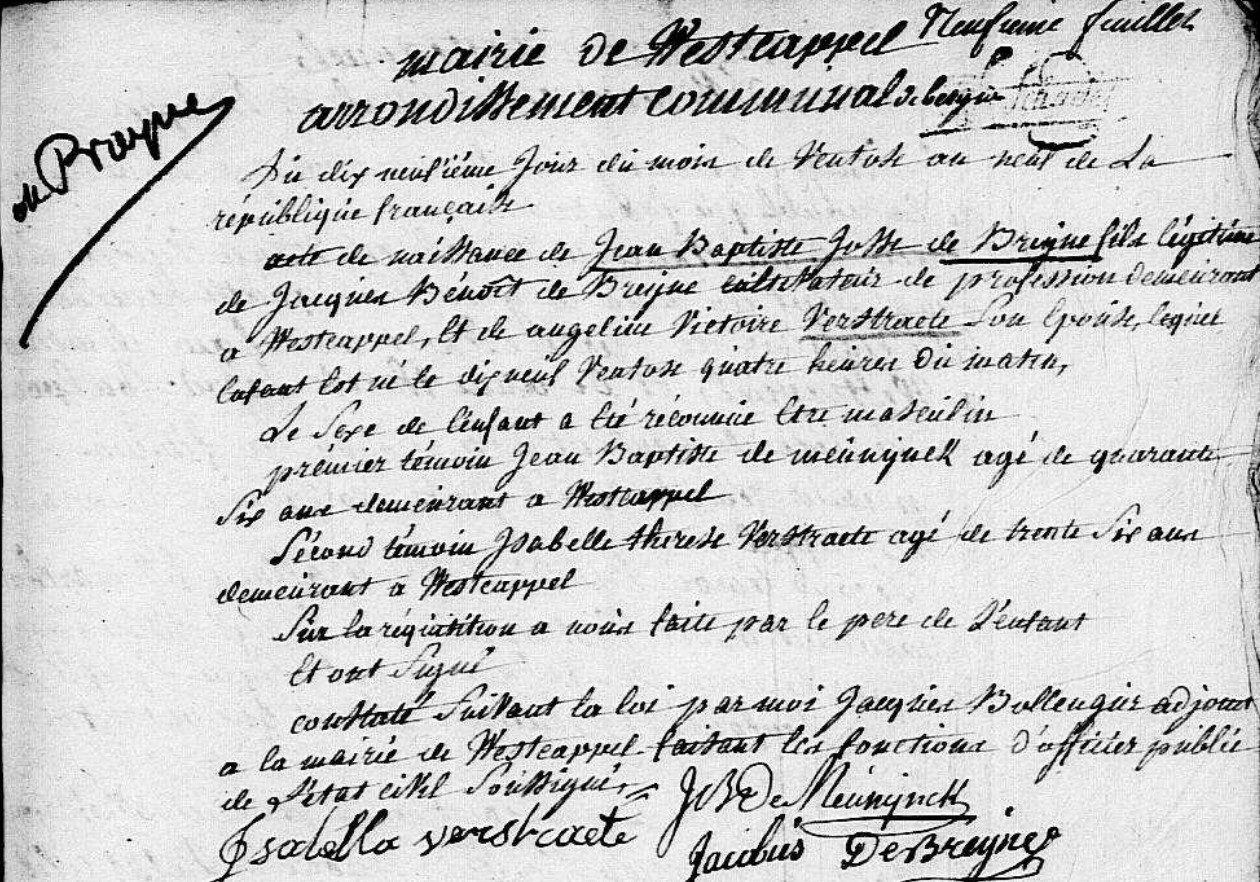 mairie de Westcappel Neufieme feuillet
arrondissement communal de bergue
de Breyne
Du dix neufiéme Jour du mois de Ventose an neuf de La
république française
acte de naissance de Jean Baptiste Josse de Breyne fils légitime
de Jacques Bénoit de Breyne cultivateur de profession demeurant
a Westcappel, Et de angeline Victoire Verstraete Son Epouse, lequel
Enfant Est né le dix neuf Ventose quatre heures du matin,
Le Sexe de l'enfant a Eté réconnue Etre masculin
prémier témoin Jean Baptiste de meúnynck agé de quarante
Six ans demeurant a Westcappel
Sécond témoin Isabelle therese Verstraete agé de trente Six ans
demeurant a Westcappel
Sur la réquisition a nous faite par le pere de L'enfant
Et ont Signé
constaté Suivant la loi par moi Jacques Bollengier adjoint
a la mairie de Westcappel faisant les fonctions d'officier public
de L'état civil Soussigné,
JB De Meúnynck
Isabella verstraete
Jacobús DeBreyne